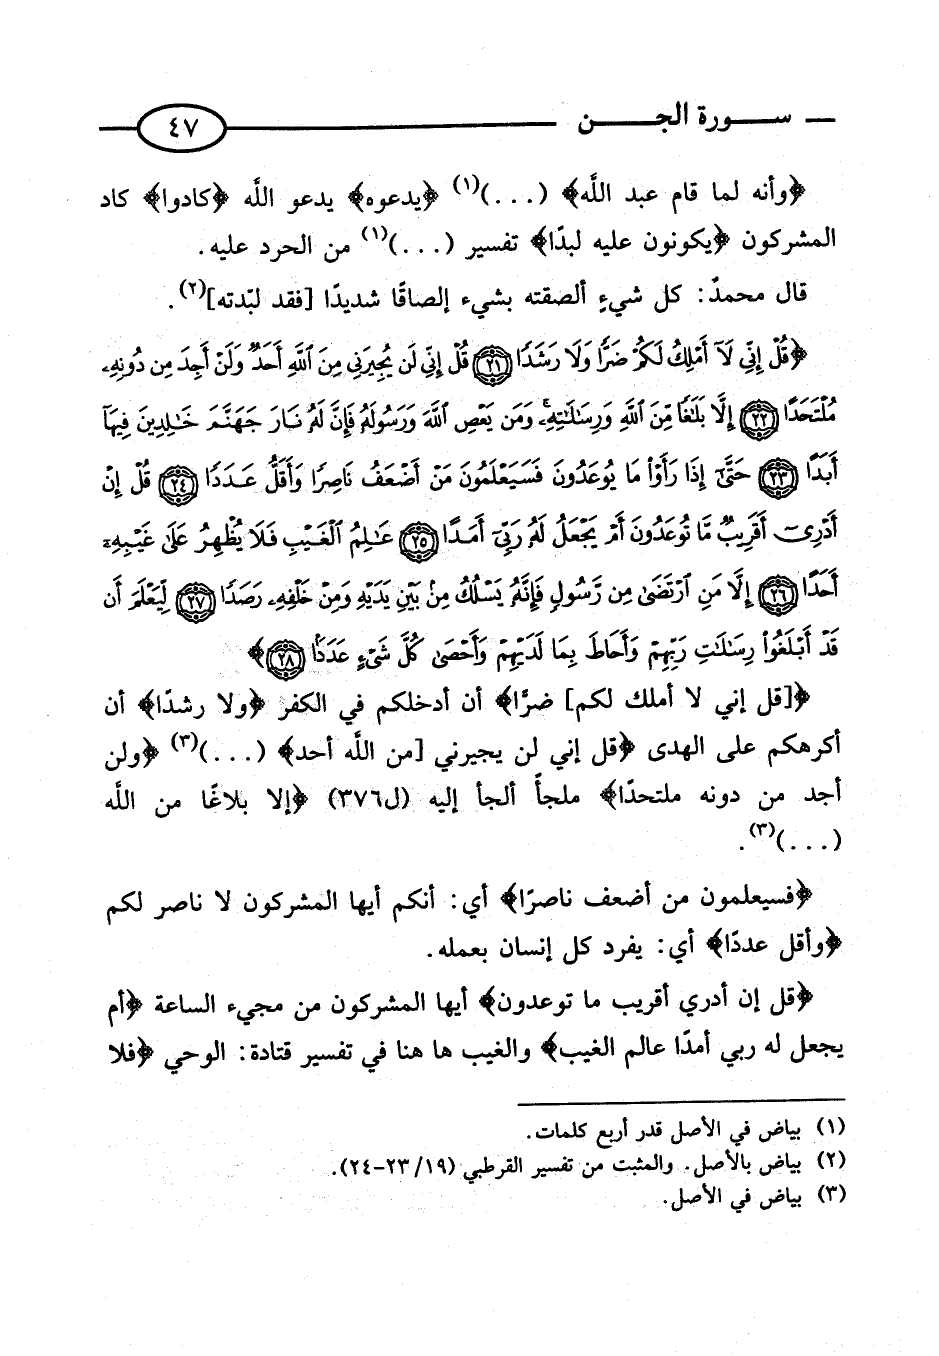 سورة الجن
٤٧
﴿وأنه لما قام عبد اللَّه﴾ (...)(١) ﴿يدعوه﴾ يدعو اللَّه ﴿كادوا﴾ كاد
المشركون ﴿يكونون عليه لبدًا﴾ تفسير (...)(١) من الحرد عليه.
قال محمدٌ: كل شيءٍ ألصقته بشيء إلصاقًا شديدًا [فقد لبّدته](٢).
﴿قُلْ إِنِّي لَآ أَمْلِكُ لَكُمْ ضَرًّا وَلَا رَشَدًا ۝٢١ قُلْ إِنِّي لَن يُجِيرَنِي مِنَ ٱللَّهِ أَحَدٌ وَلَنْ أَجِدَ مِن دُونِهِۦ
مُلْتَحَدًا ۝٢٢ إِلَّا بَلَٰغًا مِّنَ ٱللَّهِ وَرِسَٰلَٰتِهِۦۚ وَمَن يَعْصِ ٱللَّهَ وَرَسُولَهُۥ فَإِنَّ لَهُۥ نَارَ جَهَنَّمَ خَٰلِدِينَ فِيهَآ
أَبَدًا ۝٢٣ حَتَّىٰٓ إِذَا رَأَوْا۟ مَا يُوعَدُونَ فَسَيَعْلَمُونَ مَنْ أَضْعَفُ نَاصِرًا وَأَقَلُّ عَدَدًا ۝٢٤ قُلْ إِنْ
أَدْرِىٓ أَقَرِيبٌ مَّا تُوعَدُونَ أَمْ يَجْعَلُ لَهُۥ رَبِّىٓ أَمَدًا ۝٢٥ عَٰلِمُ ٱلْغَيْبِ فَلَا يُظْهِرُ عَلَىٰ غَيْبِهِۦٓ
أَحَدًا ۝٢٦ إِلَّا مَنِ ٱرْتَضَىٰ مِن رَّسُولٍ فَإِنَّهُۥ يَسْلُكُ مِنۢ بَيْنِ يَدَيْهِ وَمِنْ خَلْفِهِۦ رَصَدًا ۝٢٧ لِّيَعْلَمَ أَن
قَدْ أَبْلَغُوا۟ رِسَٰلَٰتِ رَبِّهِمْ وَأَحَاطَ بِمَا لَدَيْهِمْ وَأَحْصَىٰ كُلَّ شَىْءٍ عَدَدًۢا ۝٢٨﴾
﴿[قل إني لا أملك لكم] ضرًّا﴾ أن أدخلكم في الكفر ﴿ولا رشدًا﴾ أن
أكرهكم على الهدى ﴿قل إني لن يجيرني [من اللَّه أحد﴾ (...)(٣) ﴿ولن
أجد من دونه ملتحدًا﴾ ملجأً ألجأ إليه (ل٣٧٦) ﴿إلا بلاغًا من اللَّه
(...)(٣).
﴿فسيعلمون من أضعف ناصرًا﴾ أي: أنكم أيها المشركون لا ناصر لكم
﴿وأقل عددًا﴾ أي: يفرد كل إنسان بعمله.
﴿قل إن أدري أقريب ما توعدون﴾ أيها المشركون من مجيء الساعة ﴿أم
يجعل له ربي أمدًا عالم الغيب﴾ والغيب ها هنا في تفسير قتادة: الوحي ﴿فلا
(١) بياض في الأصل قدر أربع كلمات.
(٢) بياض بالأصل. والمثبت من تفسير القرطبي (١٩/ ٢٣-٢٤).
(٣) بياض في الأصل.